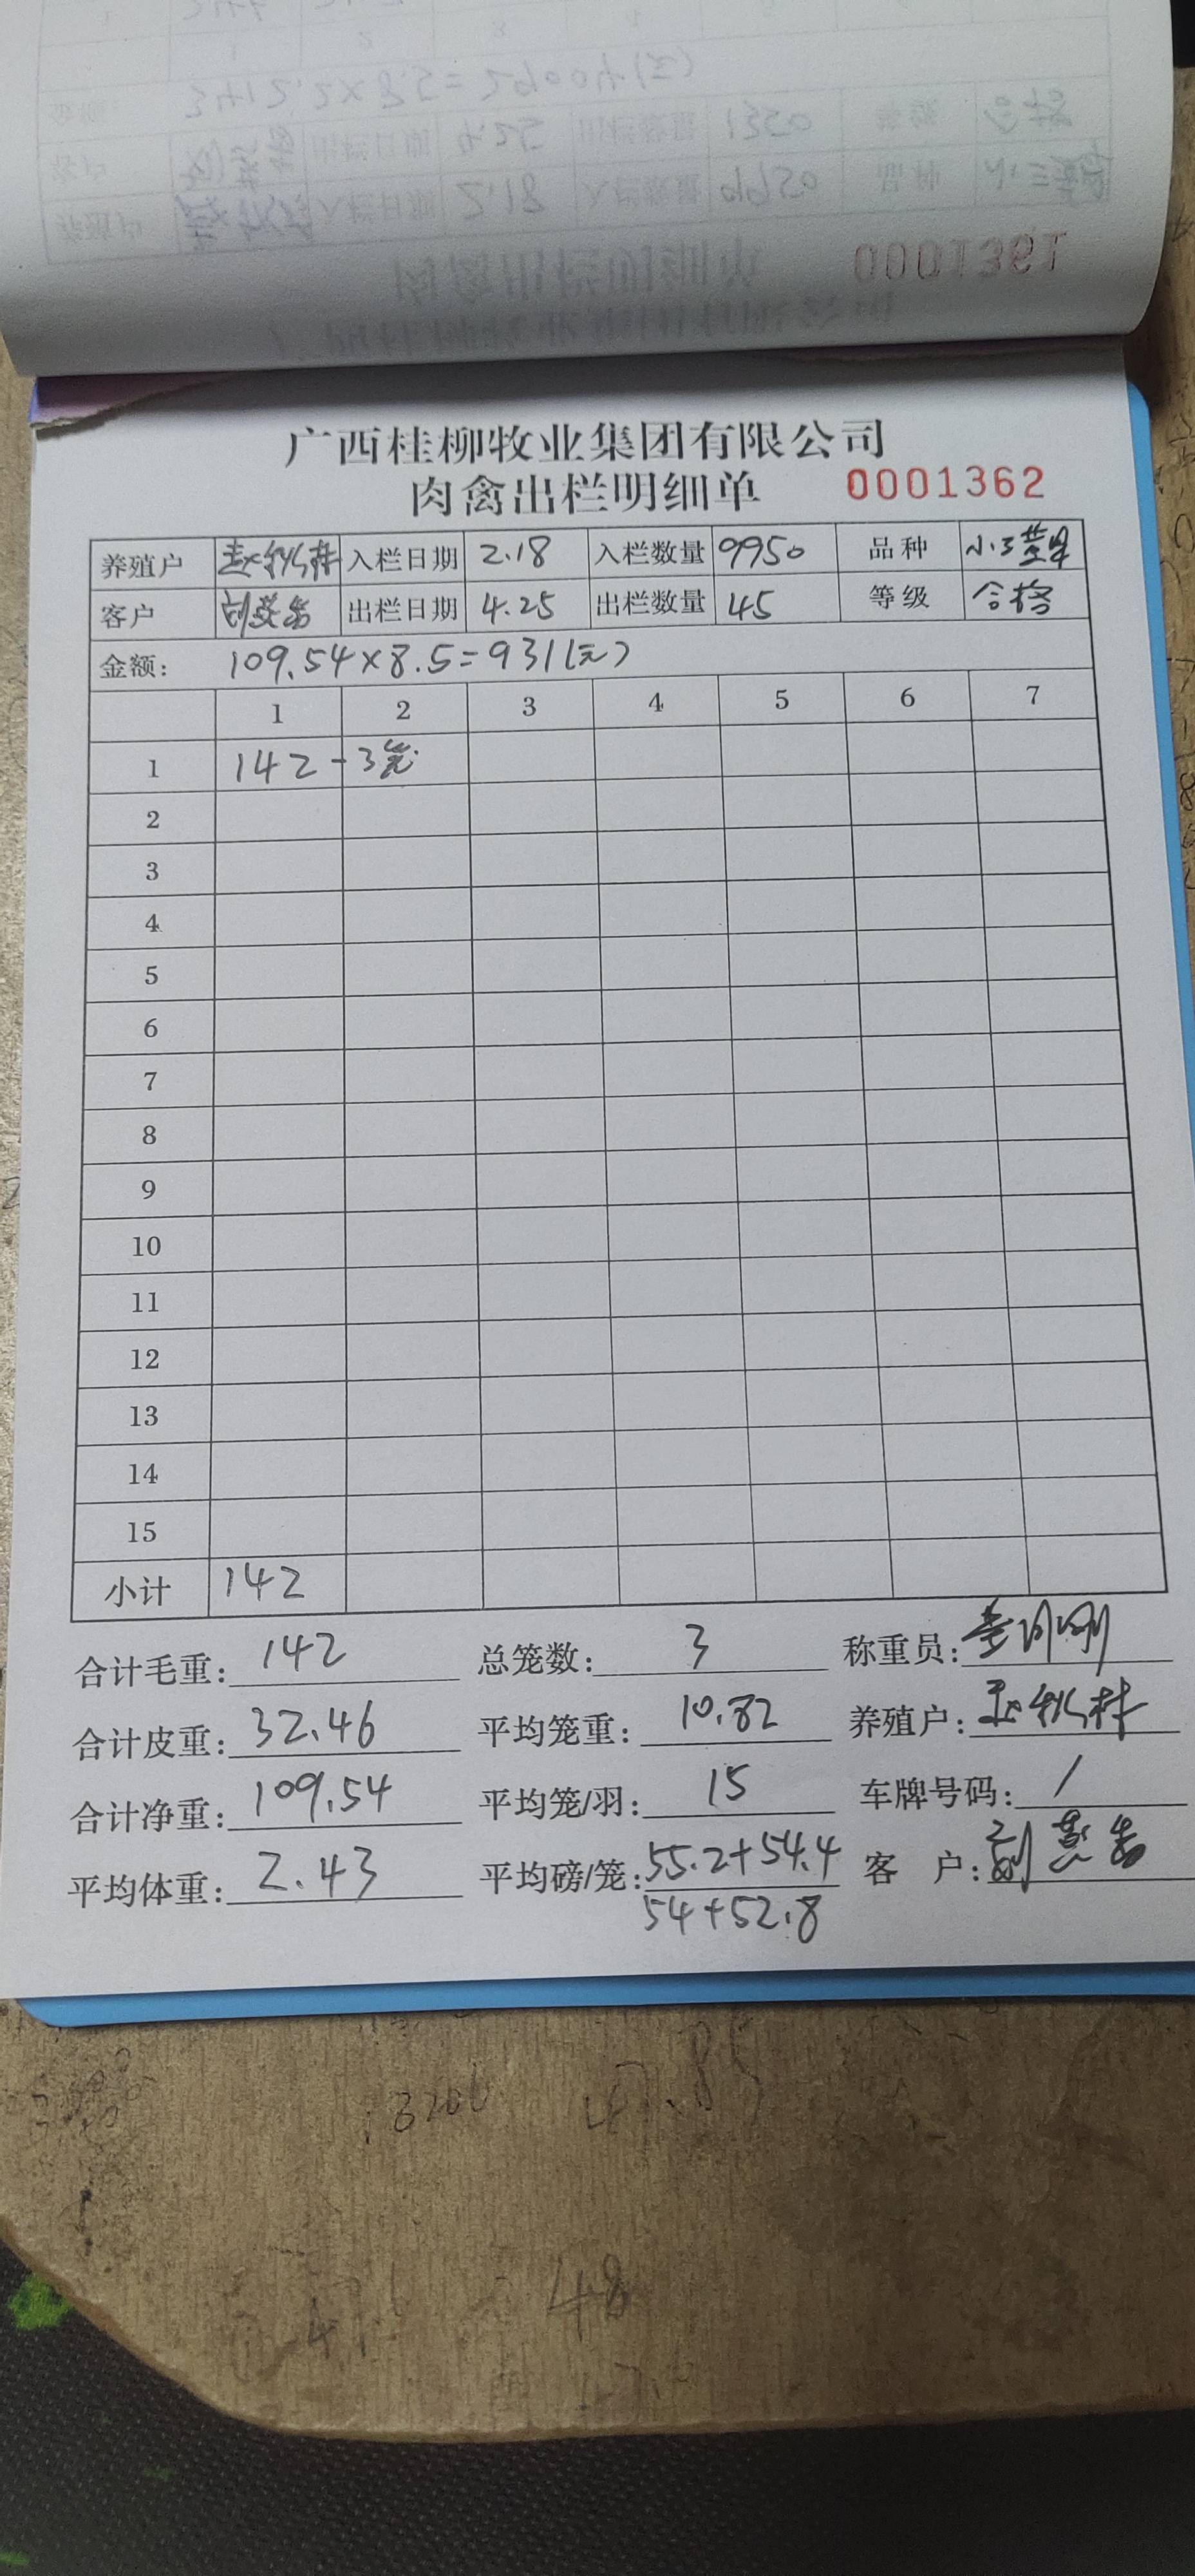 0001361
广西桂柳牧业集团有限公司
肉禽出栏明细单 0001362
养殖户 赵秋林 入栏日期 2.18 入栏数量 9950 品种
客户 出栏日期 4.25 出栏数量 45 等级 合格
金额: 109.54×8.5=931(元)
1 2 3 4 5 6 7
1 142-3笼
2
3
4
5
6
7
8
9
10
11
12
13
14
15
小计 142
合计毛重: 142 总笼数: 3 称重员:
合计皮重: 32.46 平均笼重: 10.82 养殖户: 赵秋林
合计净重: 109.54 平均笼/羽: 15 车牌号码: /
平均体重: 2.43 平均磅/笼: 55.2+54.4 客 户:
54+52.8
48